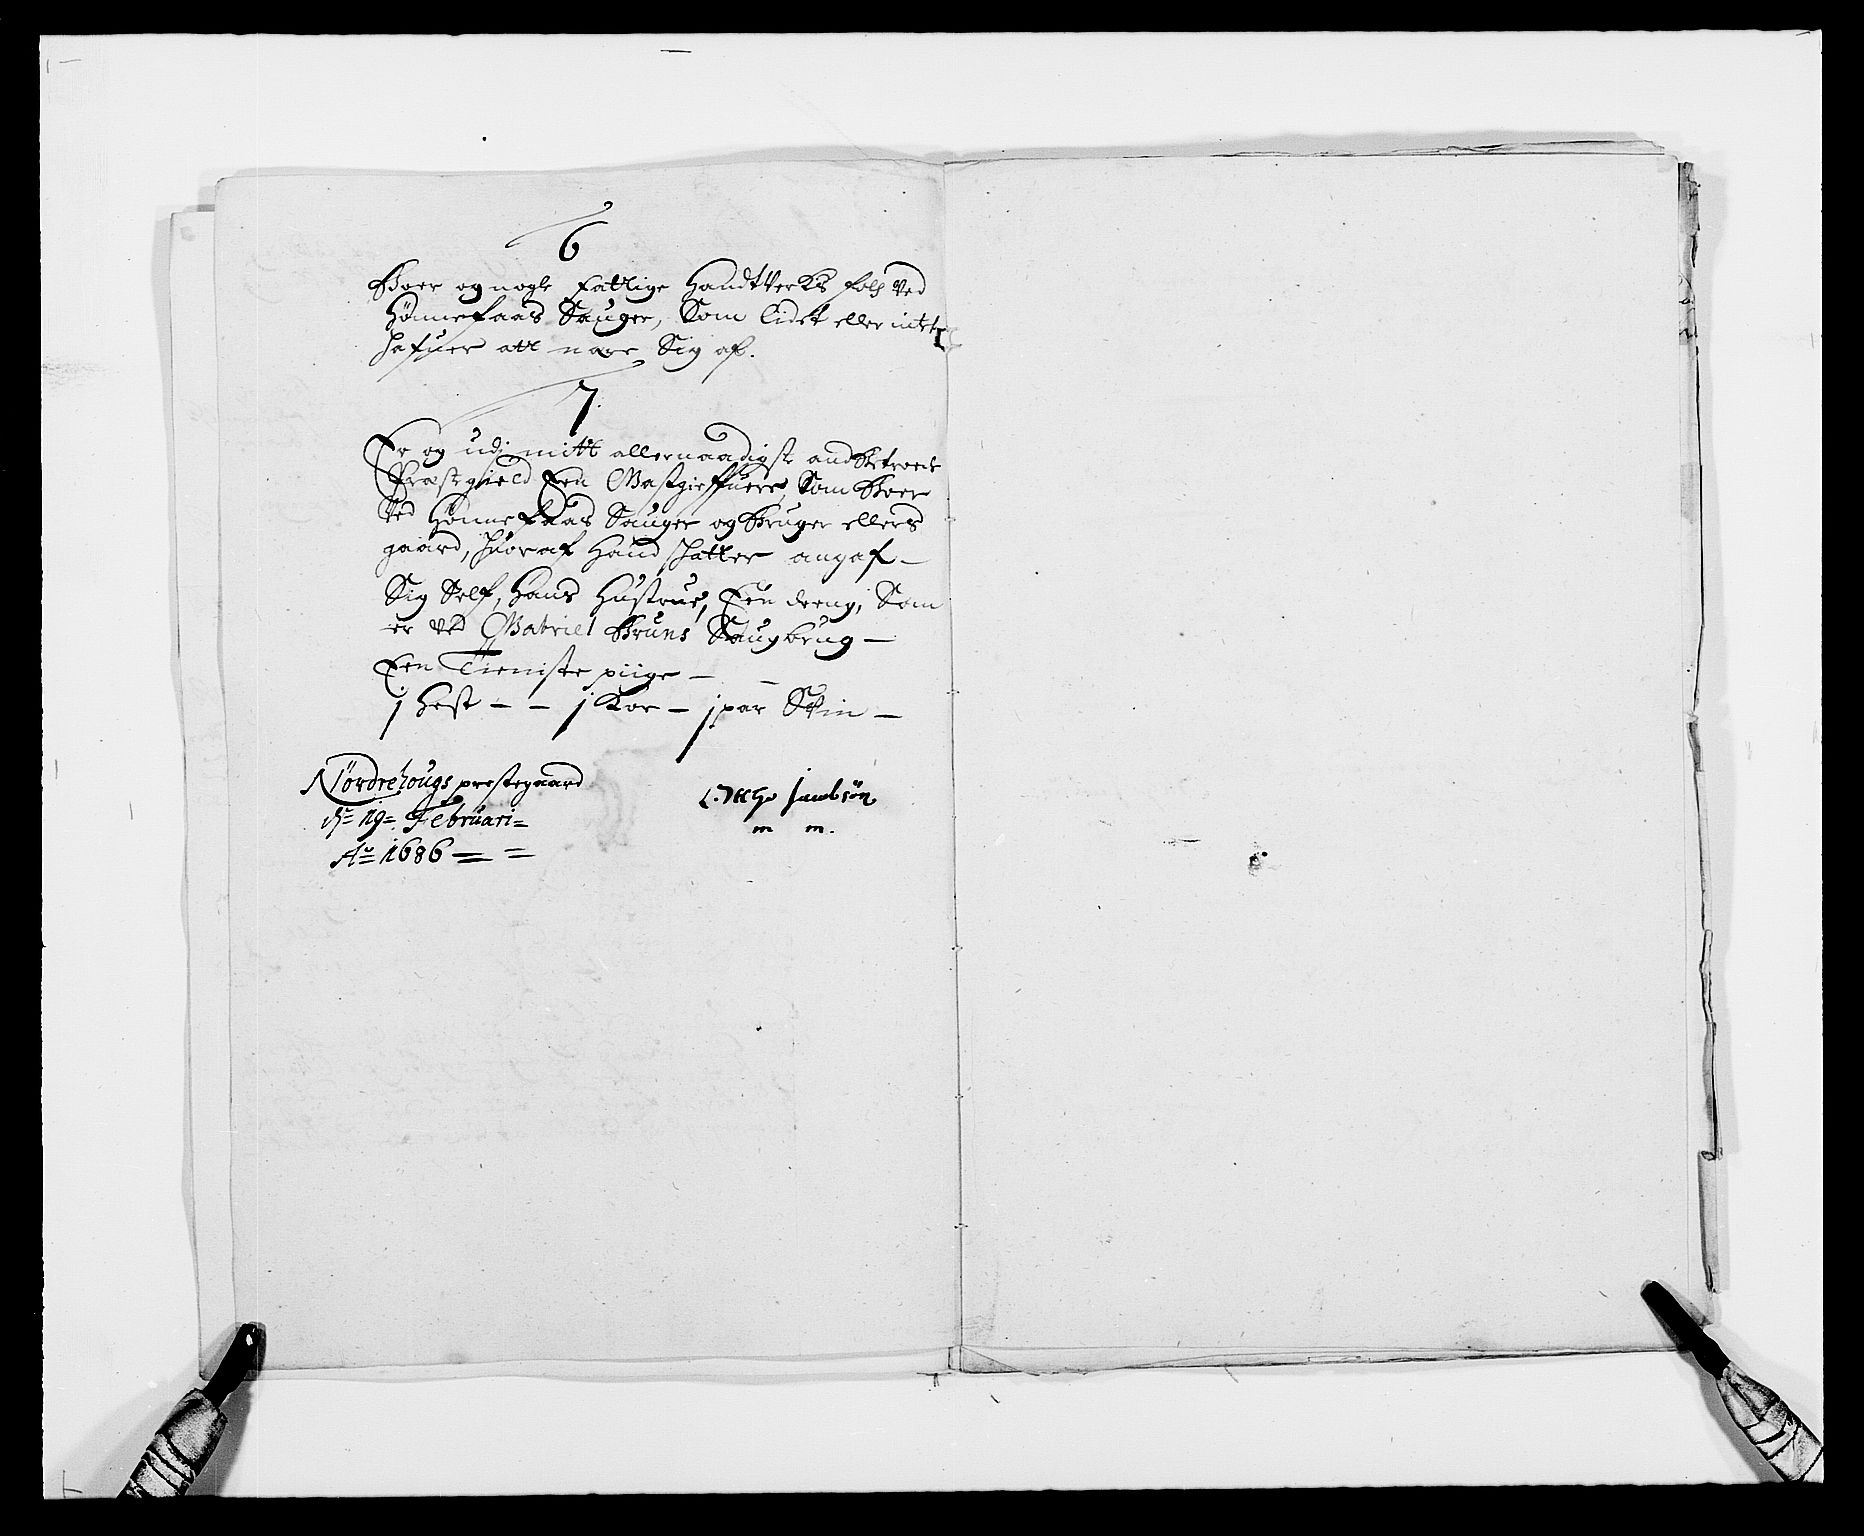 6
Boer og nogle fattige Handtverks folk ved
Hønnefaas Sauger, Som lidet eller intet
hafuer att nære Sig af.
7
Er og udj mitt allernaadigst andbetroede
Præstegield Een Gastgieffuere, Som Boer
ved Hønnefaas Sauger og Bruger ellers
gaard, huoraf Hand skatter angaf –
Sig Self, Hans Hustrue, Een dreng, Som
er ved Gabriel Bruns Saugbrug –
Een Tieniste piige –
j Hest – – j Koe – j par Skin –
Nordrehougs prestegaard
dn 19 Februari
Ao 1686
Otthe Jacobsøn
m m.